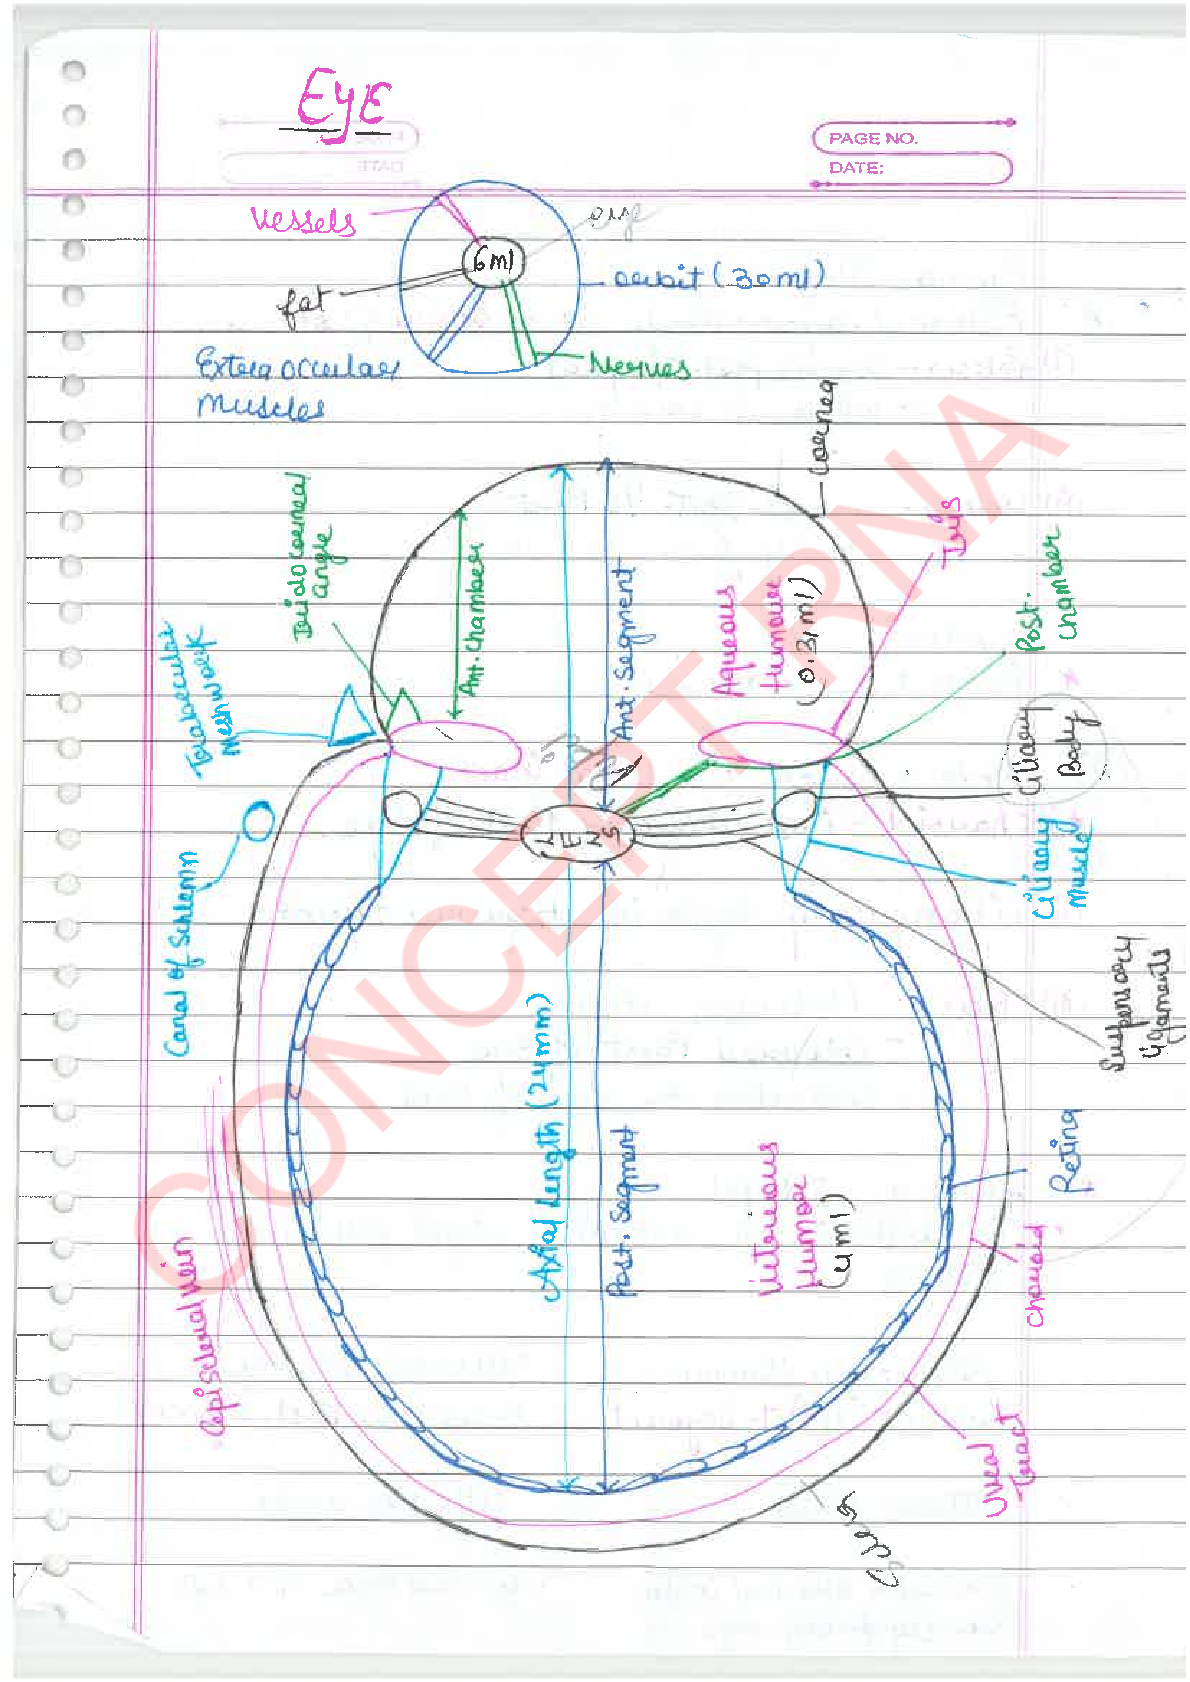 EyE
PAGE NO.
DATE:
Vessels
eye
6ml
orbit (30ml)
fat
Nerves
Extra occular
Muscles
Cornea
Irido corneal
angle
Ant. Chamber
Ant. Segment
Aqueous
Humour
(0.31ml)
Iris
Post.
Chamber
Trabecular
Meshwork
Ciliary
Body
LENS
Ciliary
Muscle
Canal of Schlemn
Suspensory
ligaments
Axial length (24mm)
Post. Segment
Vitorious
Humor
(4ml)
Retina
Choroid
Episcleral vein
Uveal
Tract
Sclera
CONCEPT RNA